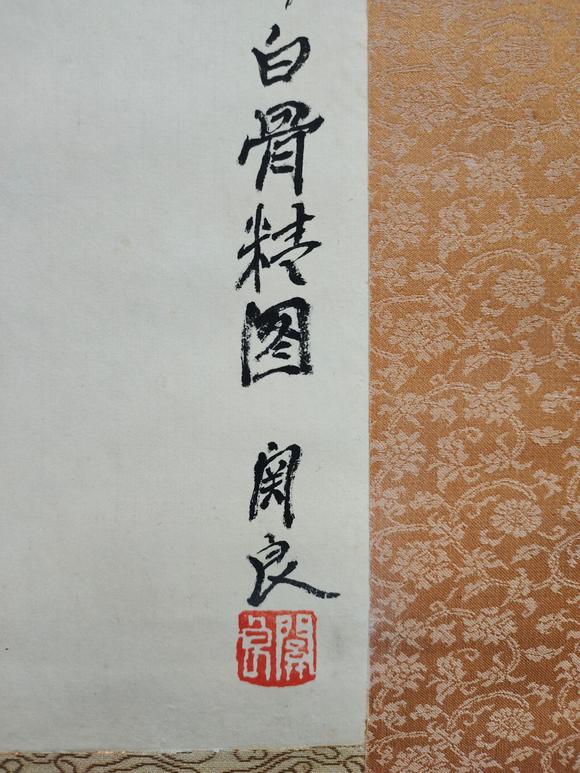 白骨精图 関良
関良